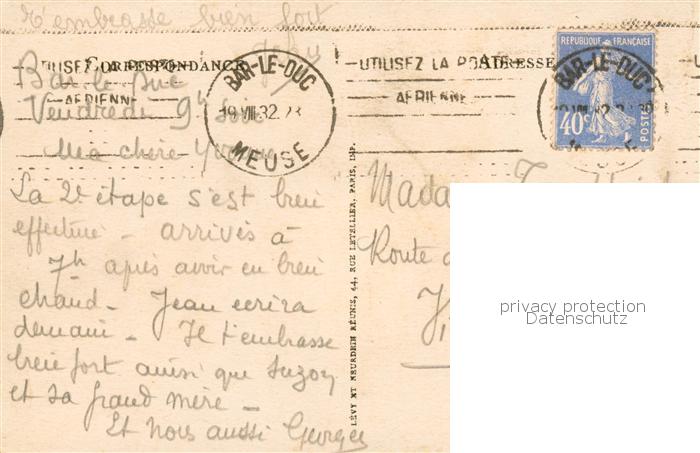 t'embrasse bien fort
CORRESPONDANCE
ADRESSE
UTILISEZ LA POSTE
AERIENNE
BAR-LE-DUC
19 VIII 32
MEUSE
UTILISEZ LA POSTE
AERIENNE
BAR-LE-DUC
REPUBLIQUE FRANÇAISE
40c
POSTES
Bar le Duc
Vendredi 9h soir
Ma chère Yvonne
La 2e étape s'est bien
effectuée - arrivés à
7h après avoir eu bien
chaud - Jean écrira
demain - Je t'embrasse
bien fort ainsi que Suzon
et sa grand mère -
Et nous aussi Georges
LÉVY ET NEURDEIN RÉUNIS, 44, RUE LETELLIER, PARIS, IMP.
Madame
Route
privacy protection
Datenschutz